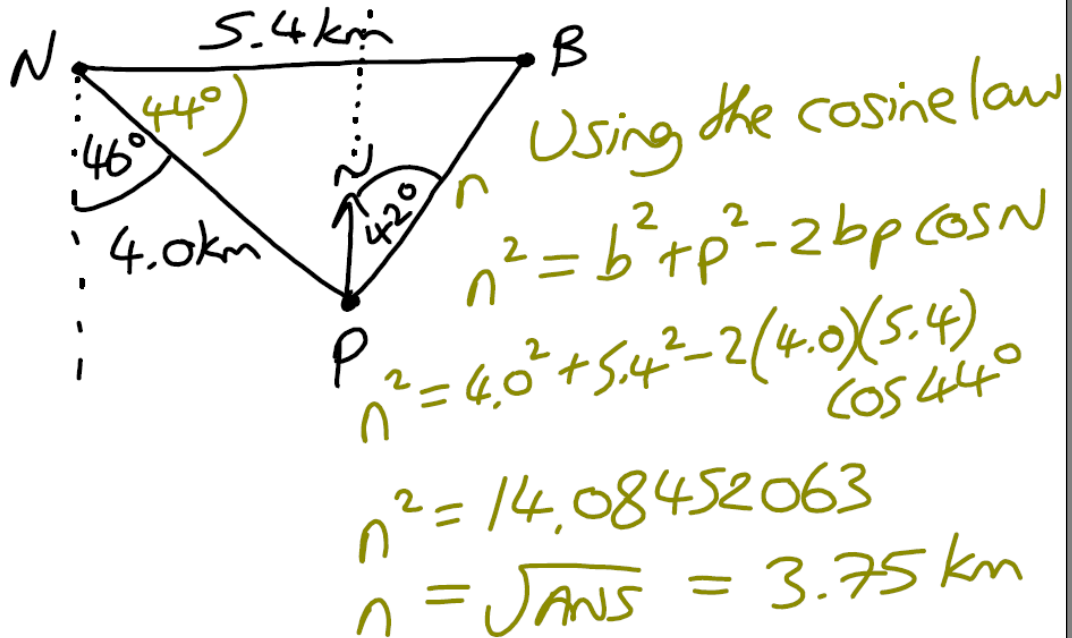 5.4 km
N
B
44°
46°
N
42°
n
4.0km
P
Using the cosine law
n² = b² + p² - 2bp cos N
n² = 4.0² + 5.4² - 2(4.0)(5.4)
cos 44°
n² = 14.08452063
n = √ANS = 3.75 km